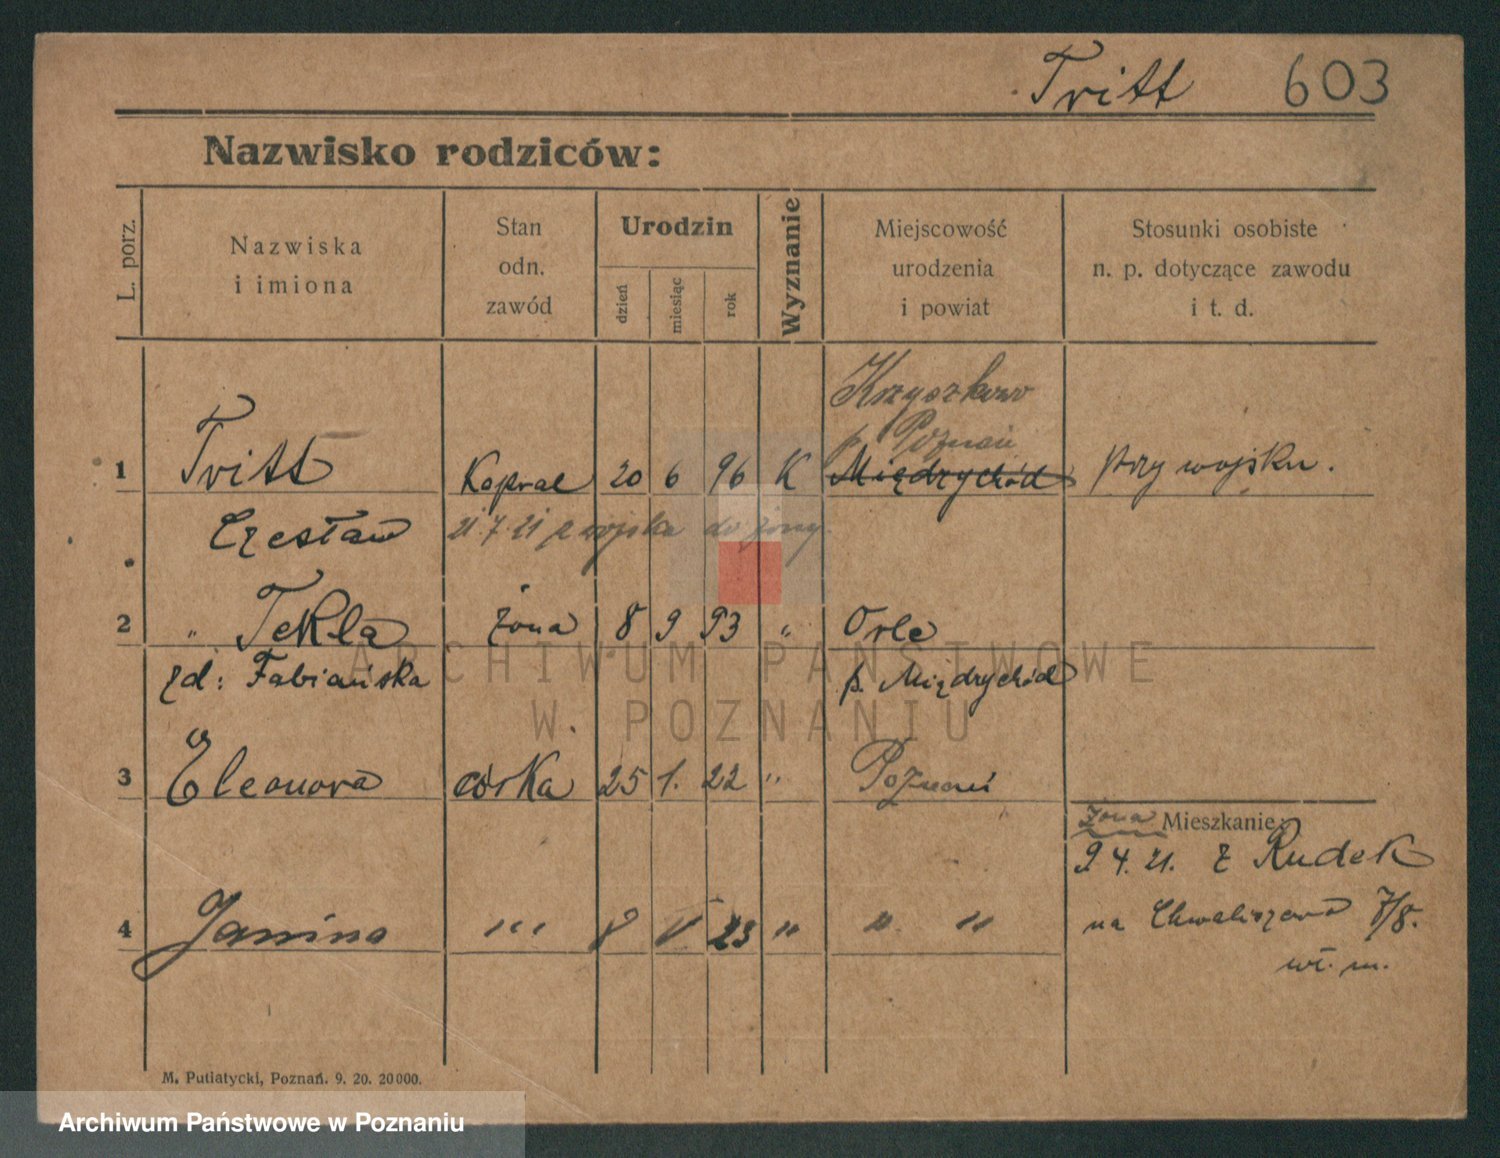 Tritt 603
Nazwisko rodziców:
L. porz.
Nazwiska
i imiona
Stan
odn.
zawód
Urodzin
dzień
miesiąc
rok
Wyznanie
Miejscowość
urodzenia
i powiat
Stosunki osobiste
n. p. dotyczące zawodu
i t. d.
Krzyszkowo
p. Poznań
1 Tritt Kapral 20 6 96 K Międzychód przy wojsku.
Czesław 21.7.21 z wojska do żony.
2 „ Tekla żona 8 9 93 „ Orle
zd: Fabiańska p. Międzychód
3 Eleonora córka 25 1. 22 „ Poznań
żona Mieszkanie:
9 4. 21. z Rudek
na Chwaliszewo 7/8.
4 Janina „ 8 V 23 „ „ „
wł. m.
M. Putiatycki, Poznań. 9. 20. 20000.
ARCHIWUM PAŃSTWOWE
W POZNANIU
Archiwum Państwowe w Poznaniu